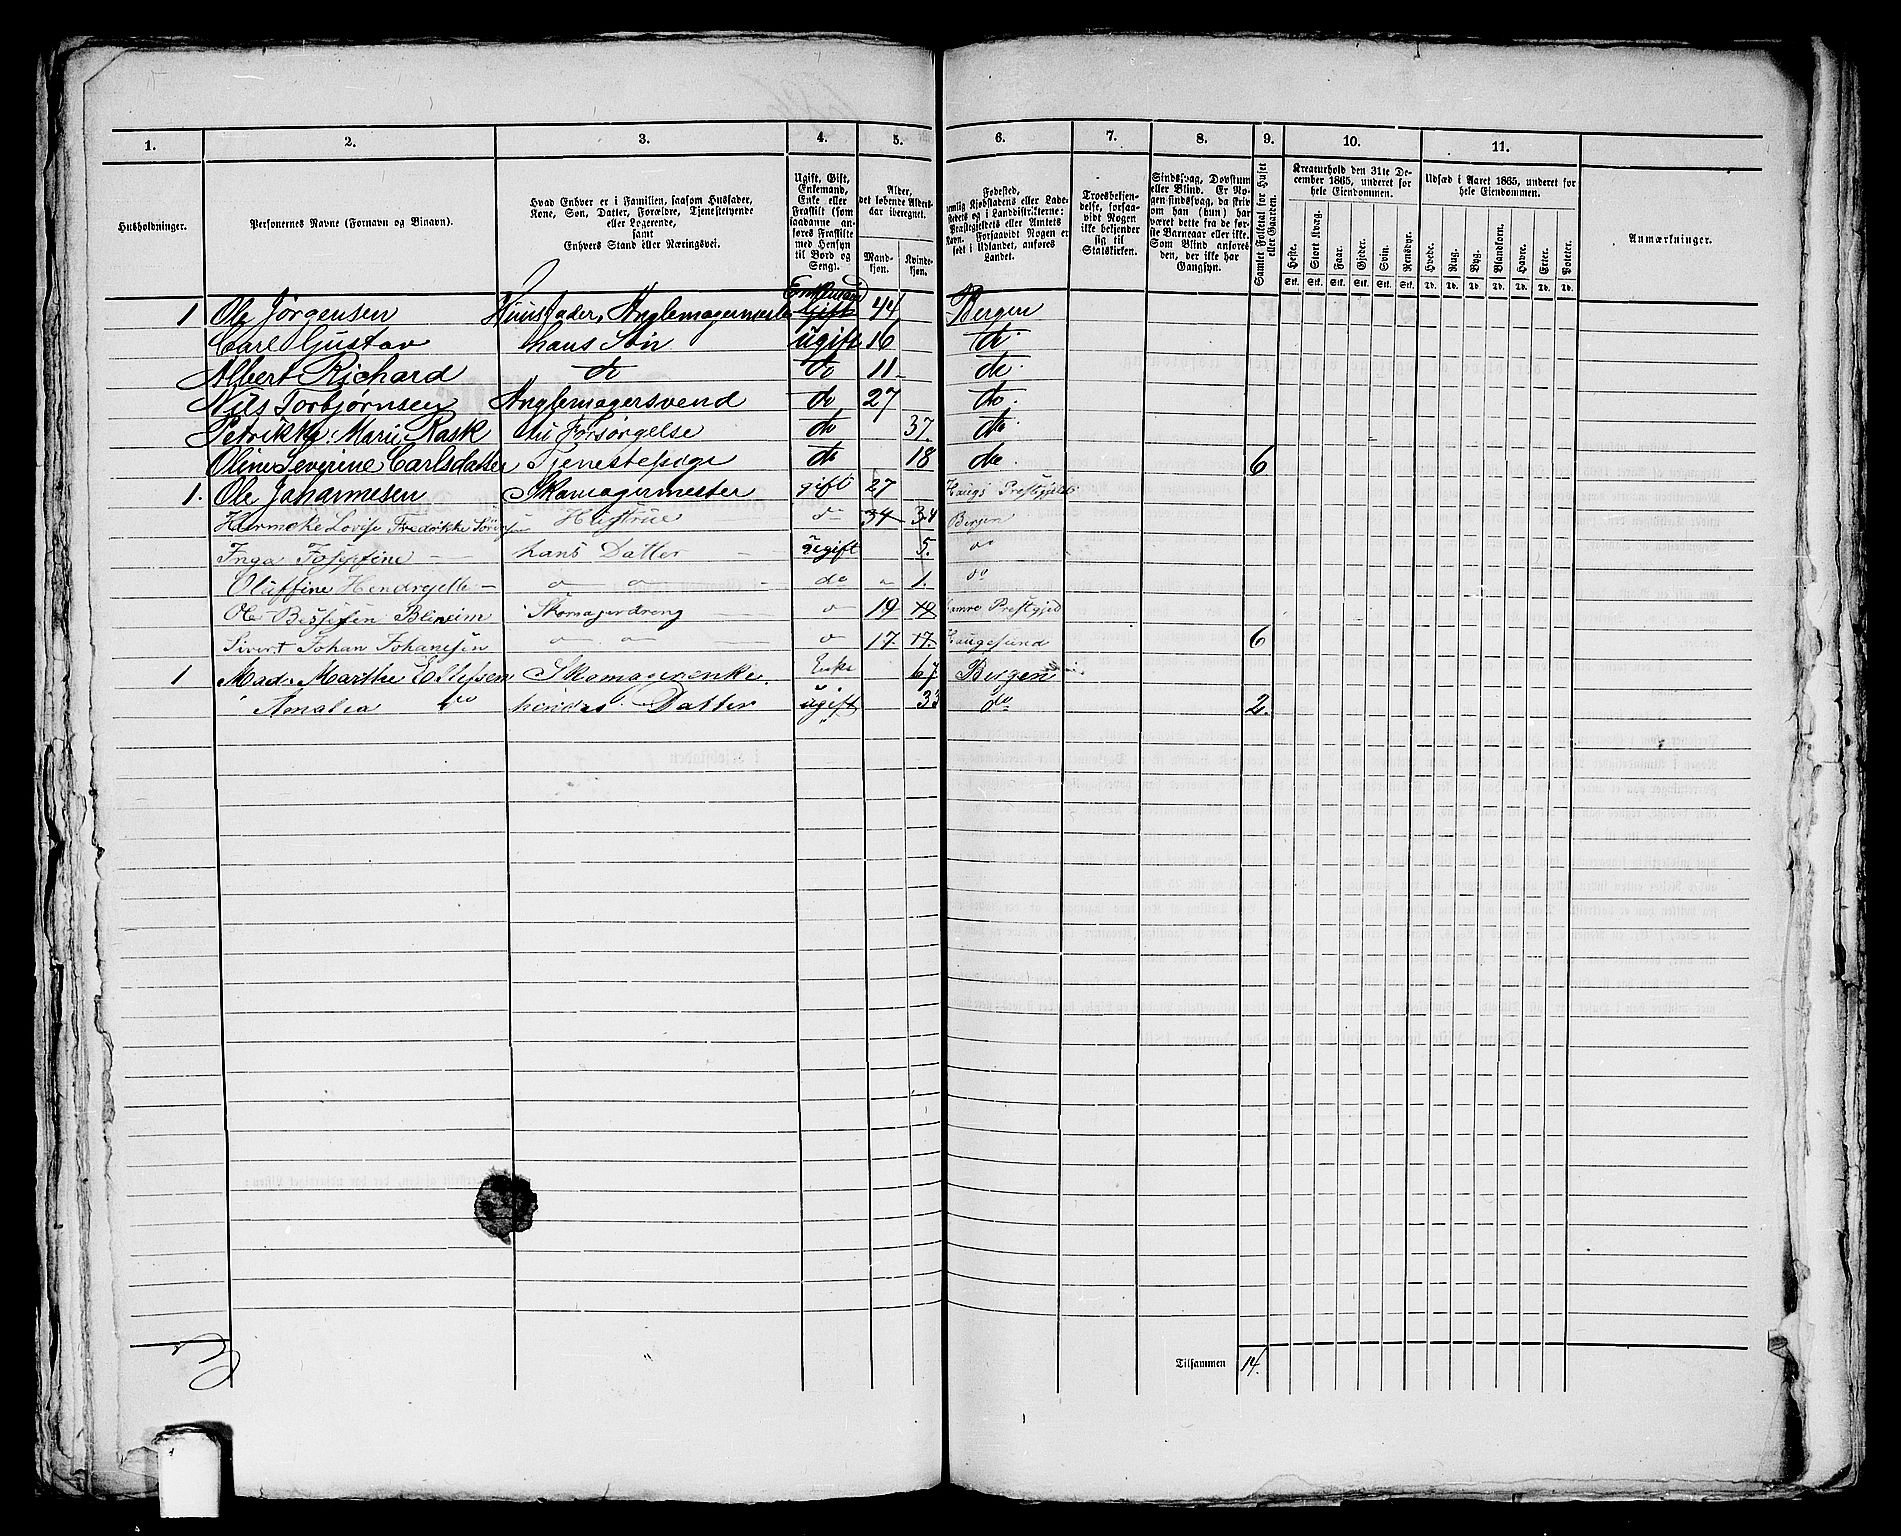 1. 2. 3. 4. 5. 6. 7. 8. 9. 10. 11.
Husholdninger.
Personernes Navne (Fornavn og Binavn).
Hvad Enhver er i Familien, saasom Husfader,
Kone, Søn, Datter, Forældre, Tjenestetyende
eller Logerende,
samt
Enhvers Stand eller Næringsvei.
Ugift, Gift,
Enkemand,
Enke eller
Fraskilt (som
saadanne an-
føres Fraskilte
med Hensyn
til Bord og
Seng).
Alder,
det løbende Alders-
aar iberegnet.
Mand-
kjøn.
Kvinde-
kjøn.
Fødested,
nemlig Kjøbstadens eller Lade-
stedets og i Landdistrikterne:
Præstegjeldets eller Amtets
Navn. Forsaavidt Nogen er
født i Udlandet, anføres
Landet.
Troesbekjen-
delse, forsaa-
vidt Nogen
ikke bekjender
sig til
Statskirken.
Sindssvag, Døvstum
eller Blind. Er No-
gen sindssvag, da skriv
om han (hun) har
været dette fra de før-
ste Barneaar eller ikke.
Som Blind anføres
den, der ikke har
Gangsyn.
Samlet Folketal for Huset
eller Gaarden.
Kreaturhold den 31te De-
cember 1865, underet for
hele Eiendommen.
Heste. Stort Kvæg. Faar. Gjeder. Svin. Rensdyr.
Stk. Stk. Stk. Stk. Stk. Stk.
Udsæd i Aaret 1865, underet for
hele Eiendommen.
Hvede. Rug. Byg. Blandkorn. Havre. Erter. Poteter.
Td. Td. Td. Td. Td. Td. Td.
Anmærkninger.
1 Ole Jörgensen Huusfader, Anglemagermester Enkemand Gift 44 Bergen
Carl Gustav hans Sön ugift 16 do
Albert Richard do do 11 do
Nils Torbjørnsen Anglemagersvend do 27 do.
Petrikke Marie Rask til Forsørgelse do 37. do
Oline Severine Carlsdatter Tjenestepige do 18 do. 6
1. Ole Johannesen Skomagermester gift 27 Haugs Prestgjeld
Lovise Fredrikke Hustrue do 34 34 Bergen
Inga hans Datter ugift 5. do
do 1. do
Ole Skomagerdreng 19 19 Hamre Prestgjed
Sivert Johan Johansen 17. 17. Haugesund 6
1 Mad. Marthe Ellefsen Skomagerenke. Enke 67 Bergen
Amalia do hendes Datter ugift 33 do 2.
Tilsammen 14.